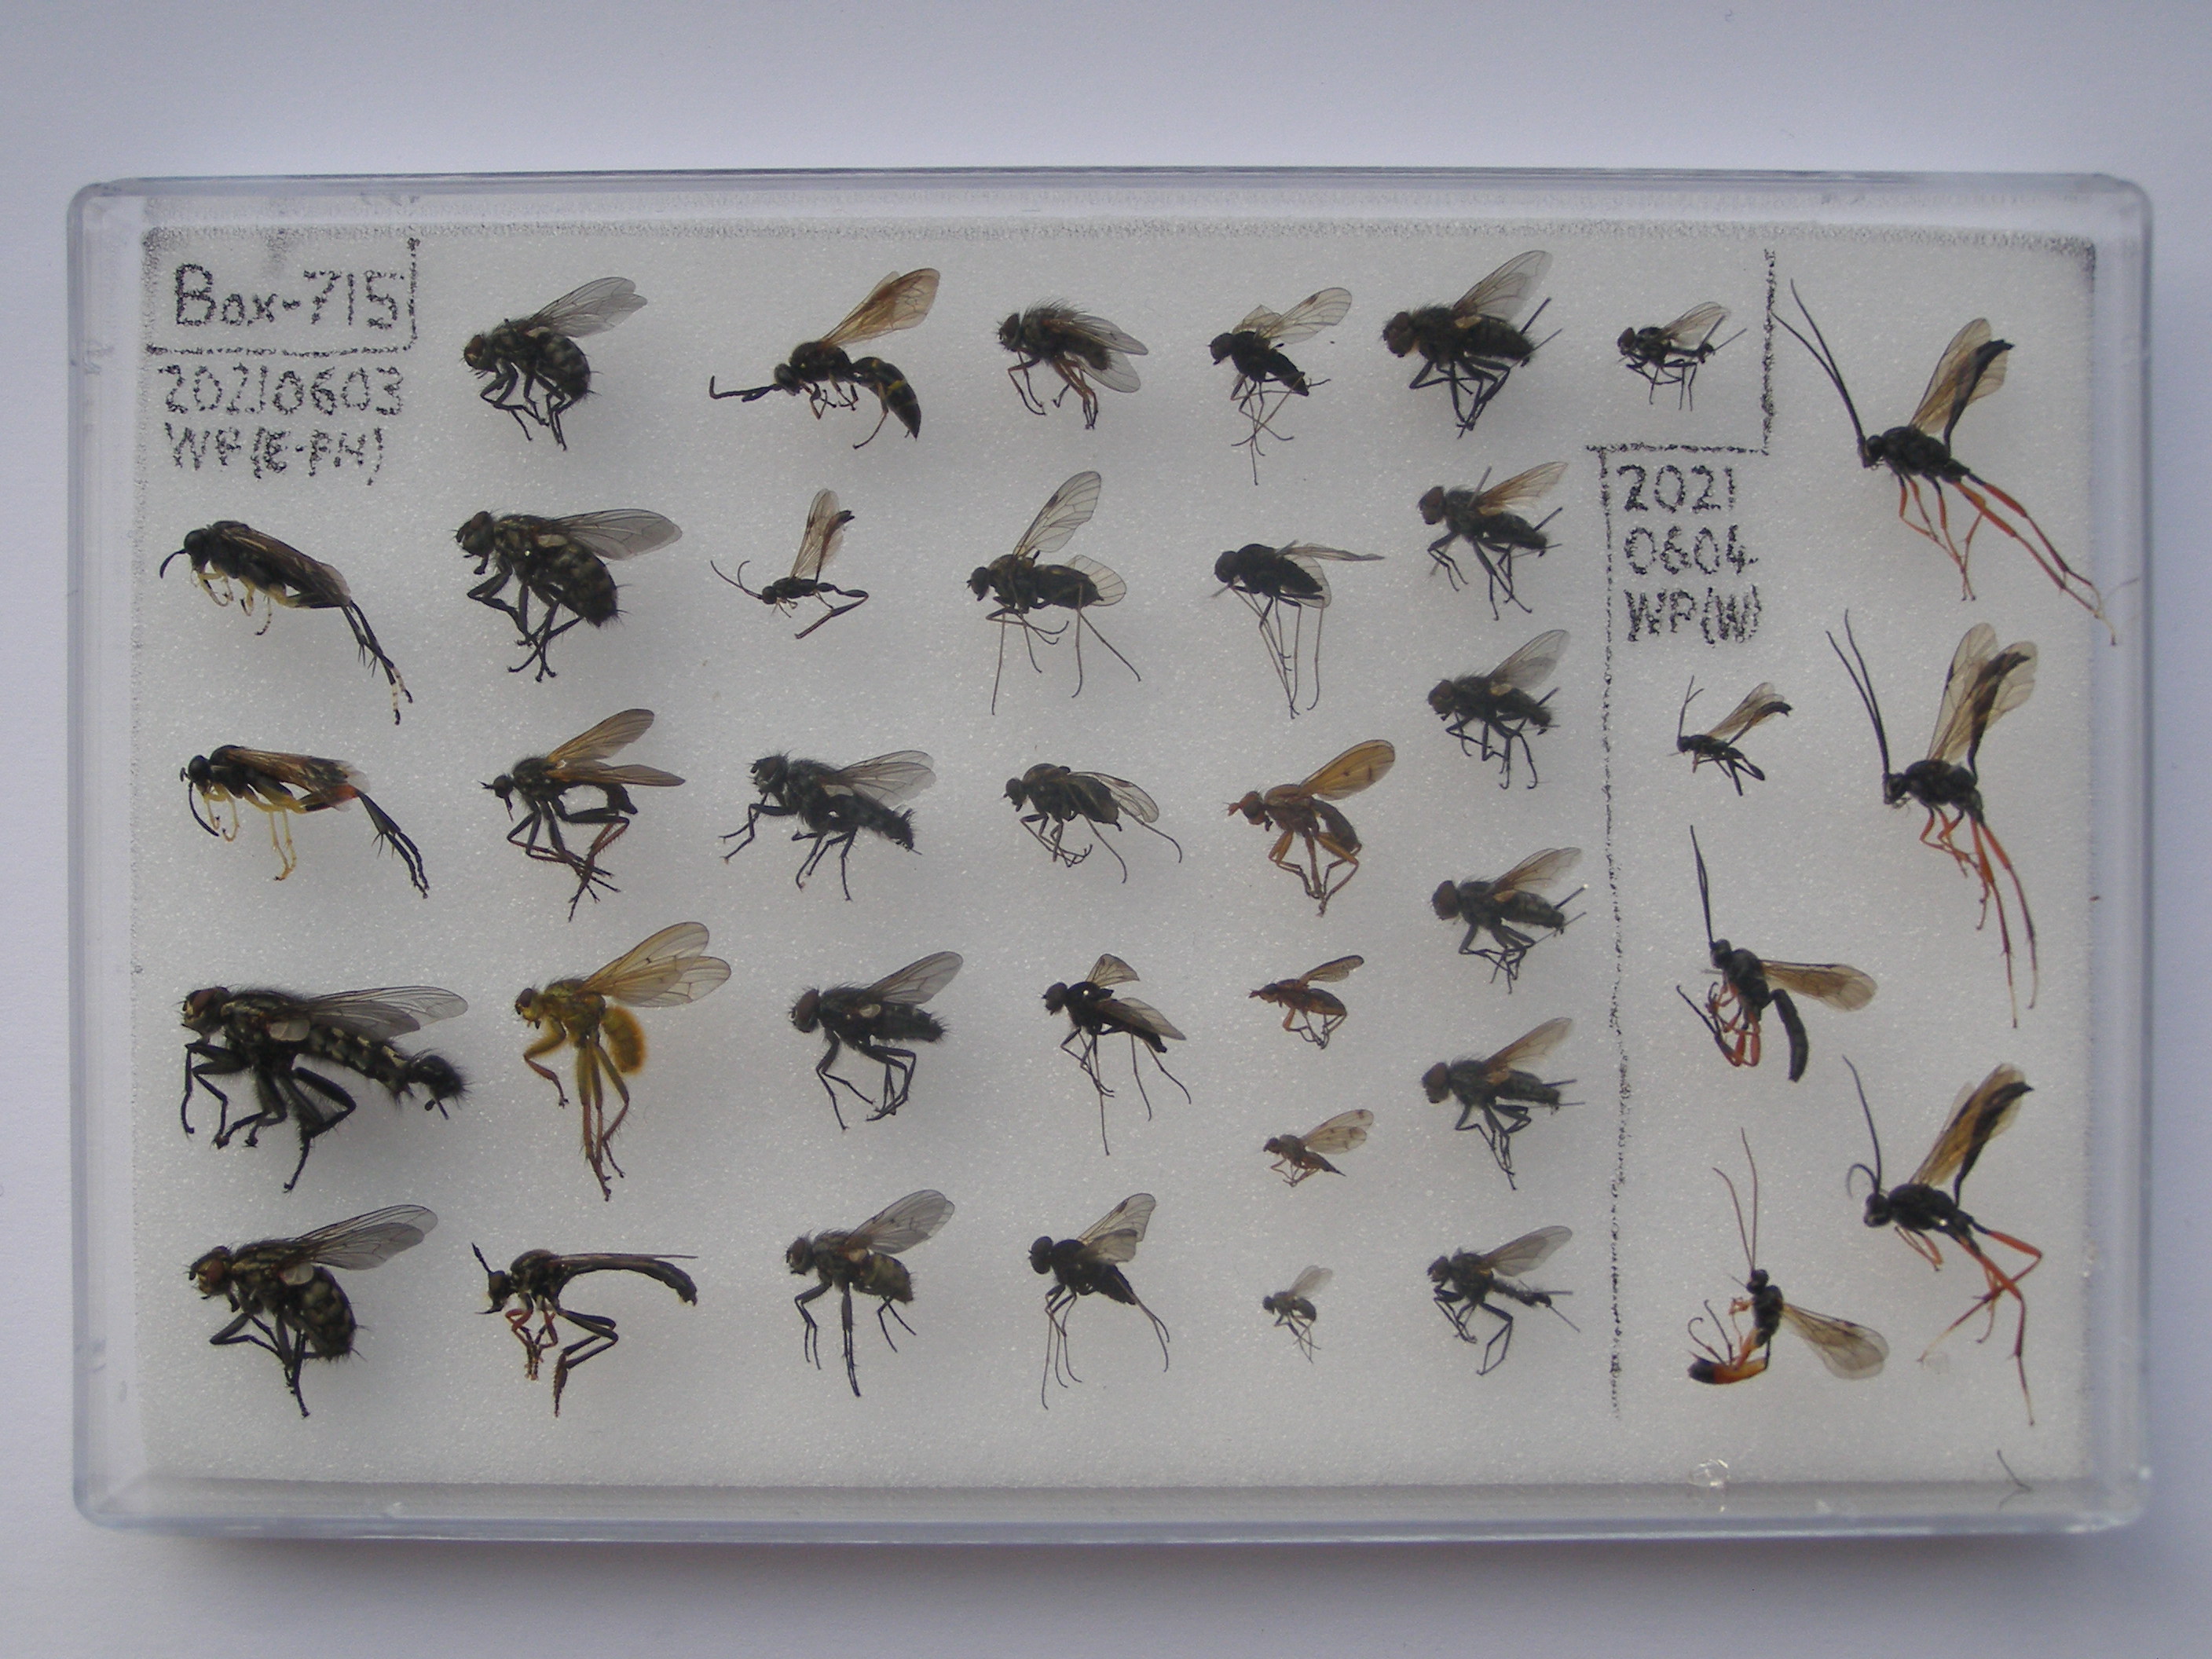 Box-715
20210603
WP(E-PH)
2021
0604
WP(W)